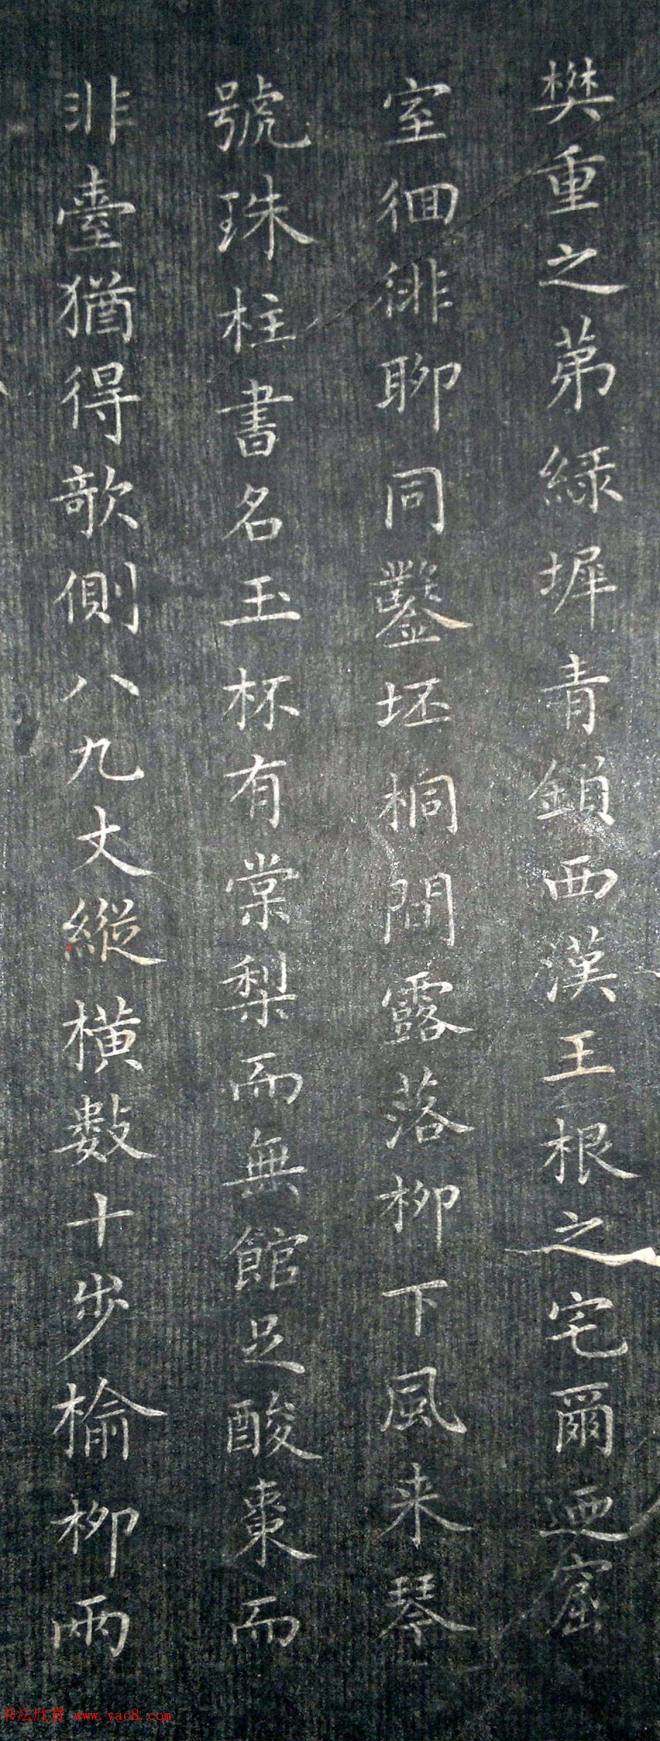 樊重之苐緑墀青鎖西漢王根之宅爾廼窟
室徊徘聊同鑿坯桐間露落柳下風来琴
號珠柱書名玉杯有棠梨而無館足酸棗而
非臺猶得欹側八九丈縱横數十步榆柳兩
书法欣赏 www.yac8.com